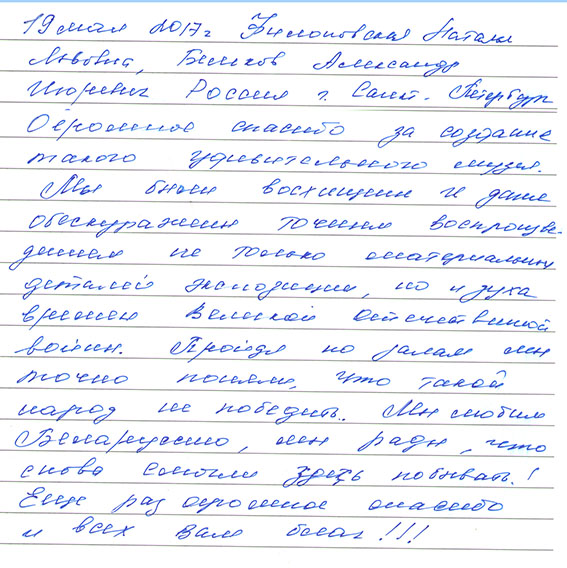 19 мая 2017г Филоновская Наталия
Львовна, Беляков Александр
Игоревич Россия г. Санкт. Петербург
Огромное спасибо за создание
такого удивительного музея.
Мы были восхищены и даже
обескуражены точным воспроизве-
дением не только материальных
деталей экспозиции, но и духа
времен Великой отечественной
войны. Пройдя по залам мы
точно поняли, что такой
народ не победить. Мы любим
Белоруссию, мы рады, что
снова смогли здесь побывать!
Еще раз огромное спасибо
и всех вам благ!!!